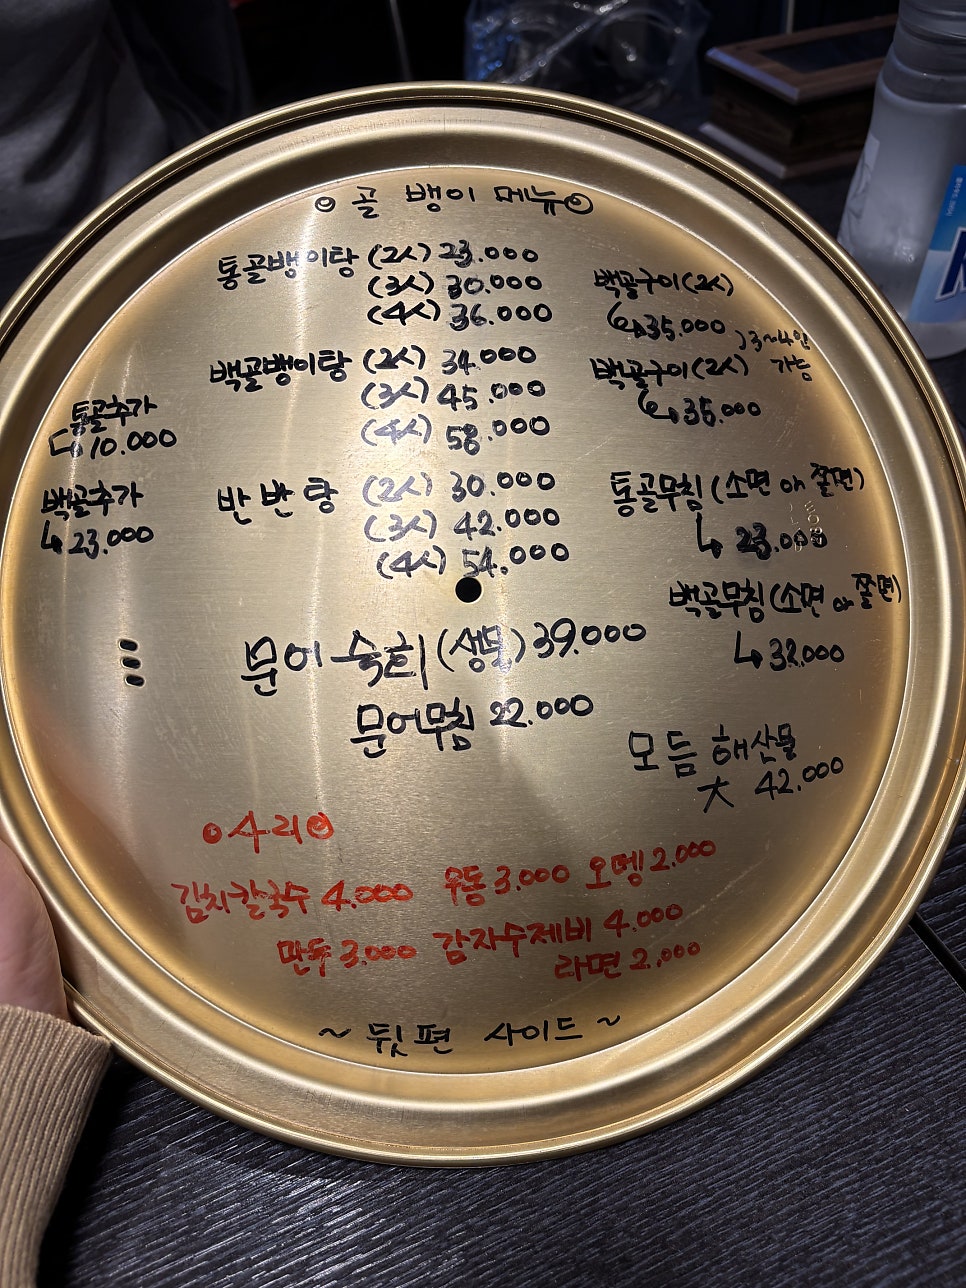 ⊙ 골 뱅이 메뉴 ⊙
통골뱅이탕 (2人) 23.000
(3人) 30.000
(4人) 36.000
백골뱅이탕 (2人) 34.000
(3人) 45.000
(4人) 58.000
통골추가
↳ 10.000
백골추가
↳ 23.000
반반탕 (2人) 30.000
(3人) 42.000
(4人) 54.000
백골구이(2人)
↳ 35.000
)3~4인
가능
백골구이(2人)
↳ 35.000
통골무침 (소면 or 쫄면)
↳ 23.000
백골무침 (소면 or 쫄면)
↳ 32.000
문어 숙회 (생물) 39.000
문어무침 22.000
모듬 해산물
大 42.000
⊙사리⊙
김치칼국수 4.000 우동 3.000 오뎅 2.000
만두 3.000 감자수제비 4.000
라면 2.000
~ 뒷편 사이드 ~